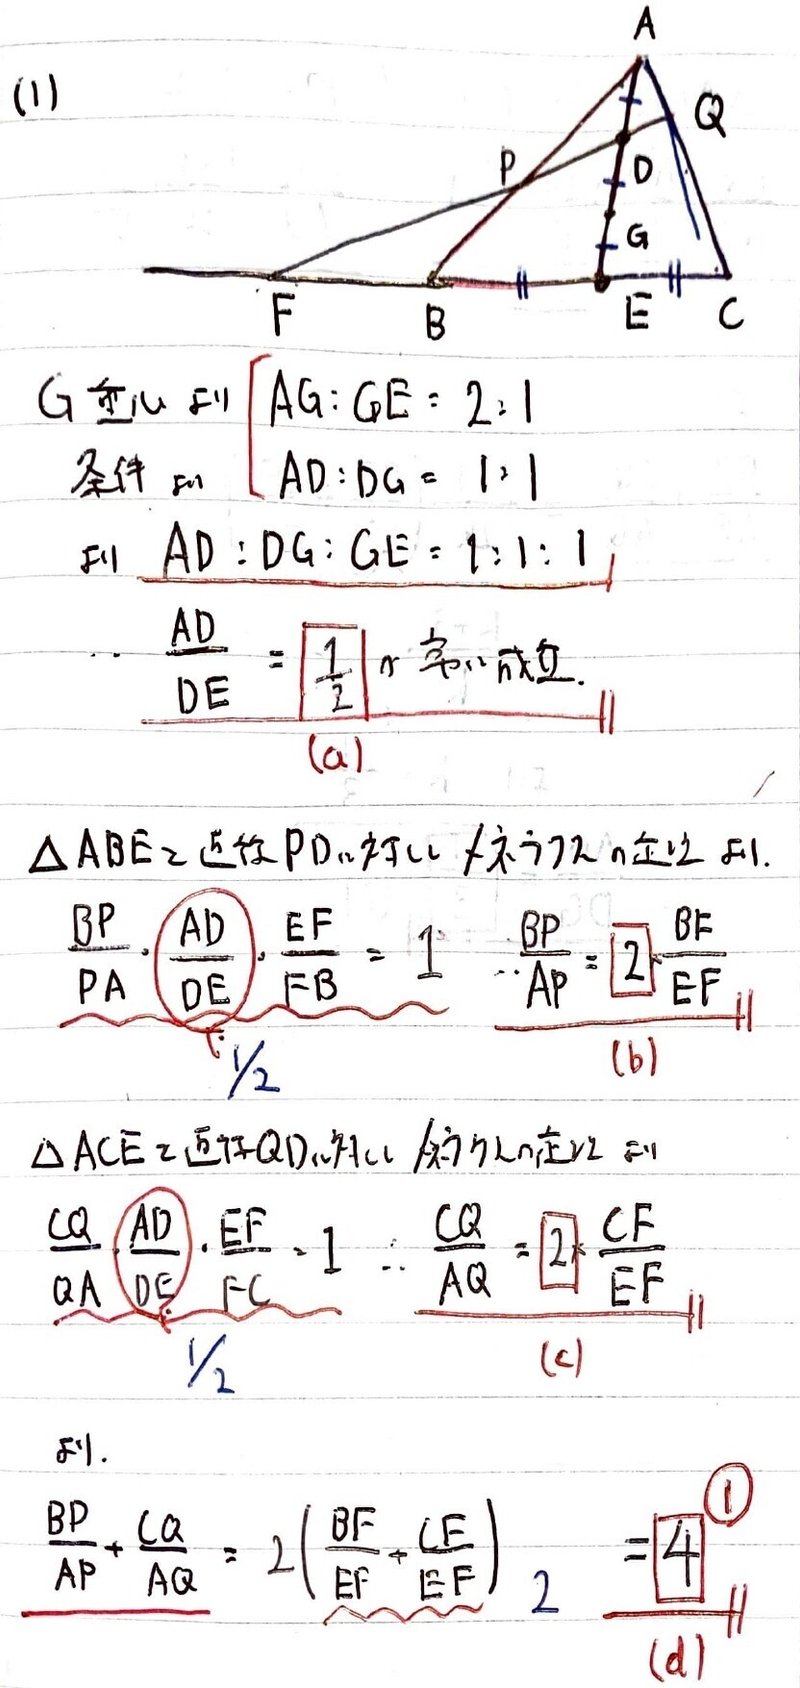 (1)
A
Q
P
D
G
F
B
E
C
G 重心 より AG : GE = 2 : 1
条件 より AD : DG = 1 : 1
より AD : DG : GE = 1 : 1 : 1
∴ AD/DE = 1/2 が 常に成立.
(a)
△ABEと直線PDに対し メネラウスの定理 より.
BP/PA · AD/DE · EF/FB = 1 ∴ BP/AP = 2 × BF/EF
1/2
(b)
△ACEと直線QDに対し メネラウスの定理 より
CQ/QA · AD/DE · EF/FC = 1 ∴ CQ/AQ = 2 × CF/EF
1/2
(c)
より.
BP/AP + CQ/AQ = 2(BF/EF + CF/EF) = 4 ①
2
(d)